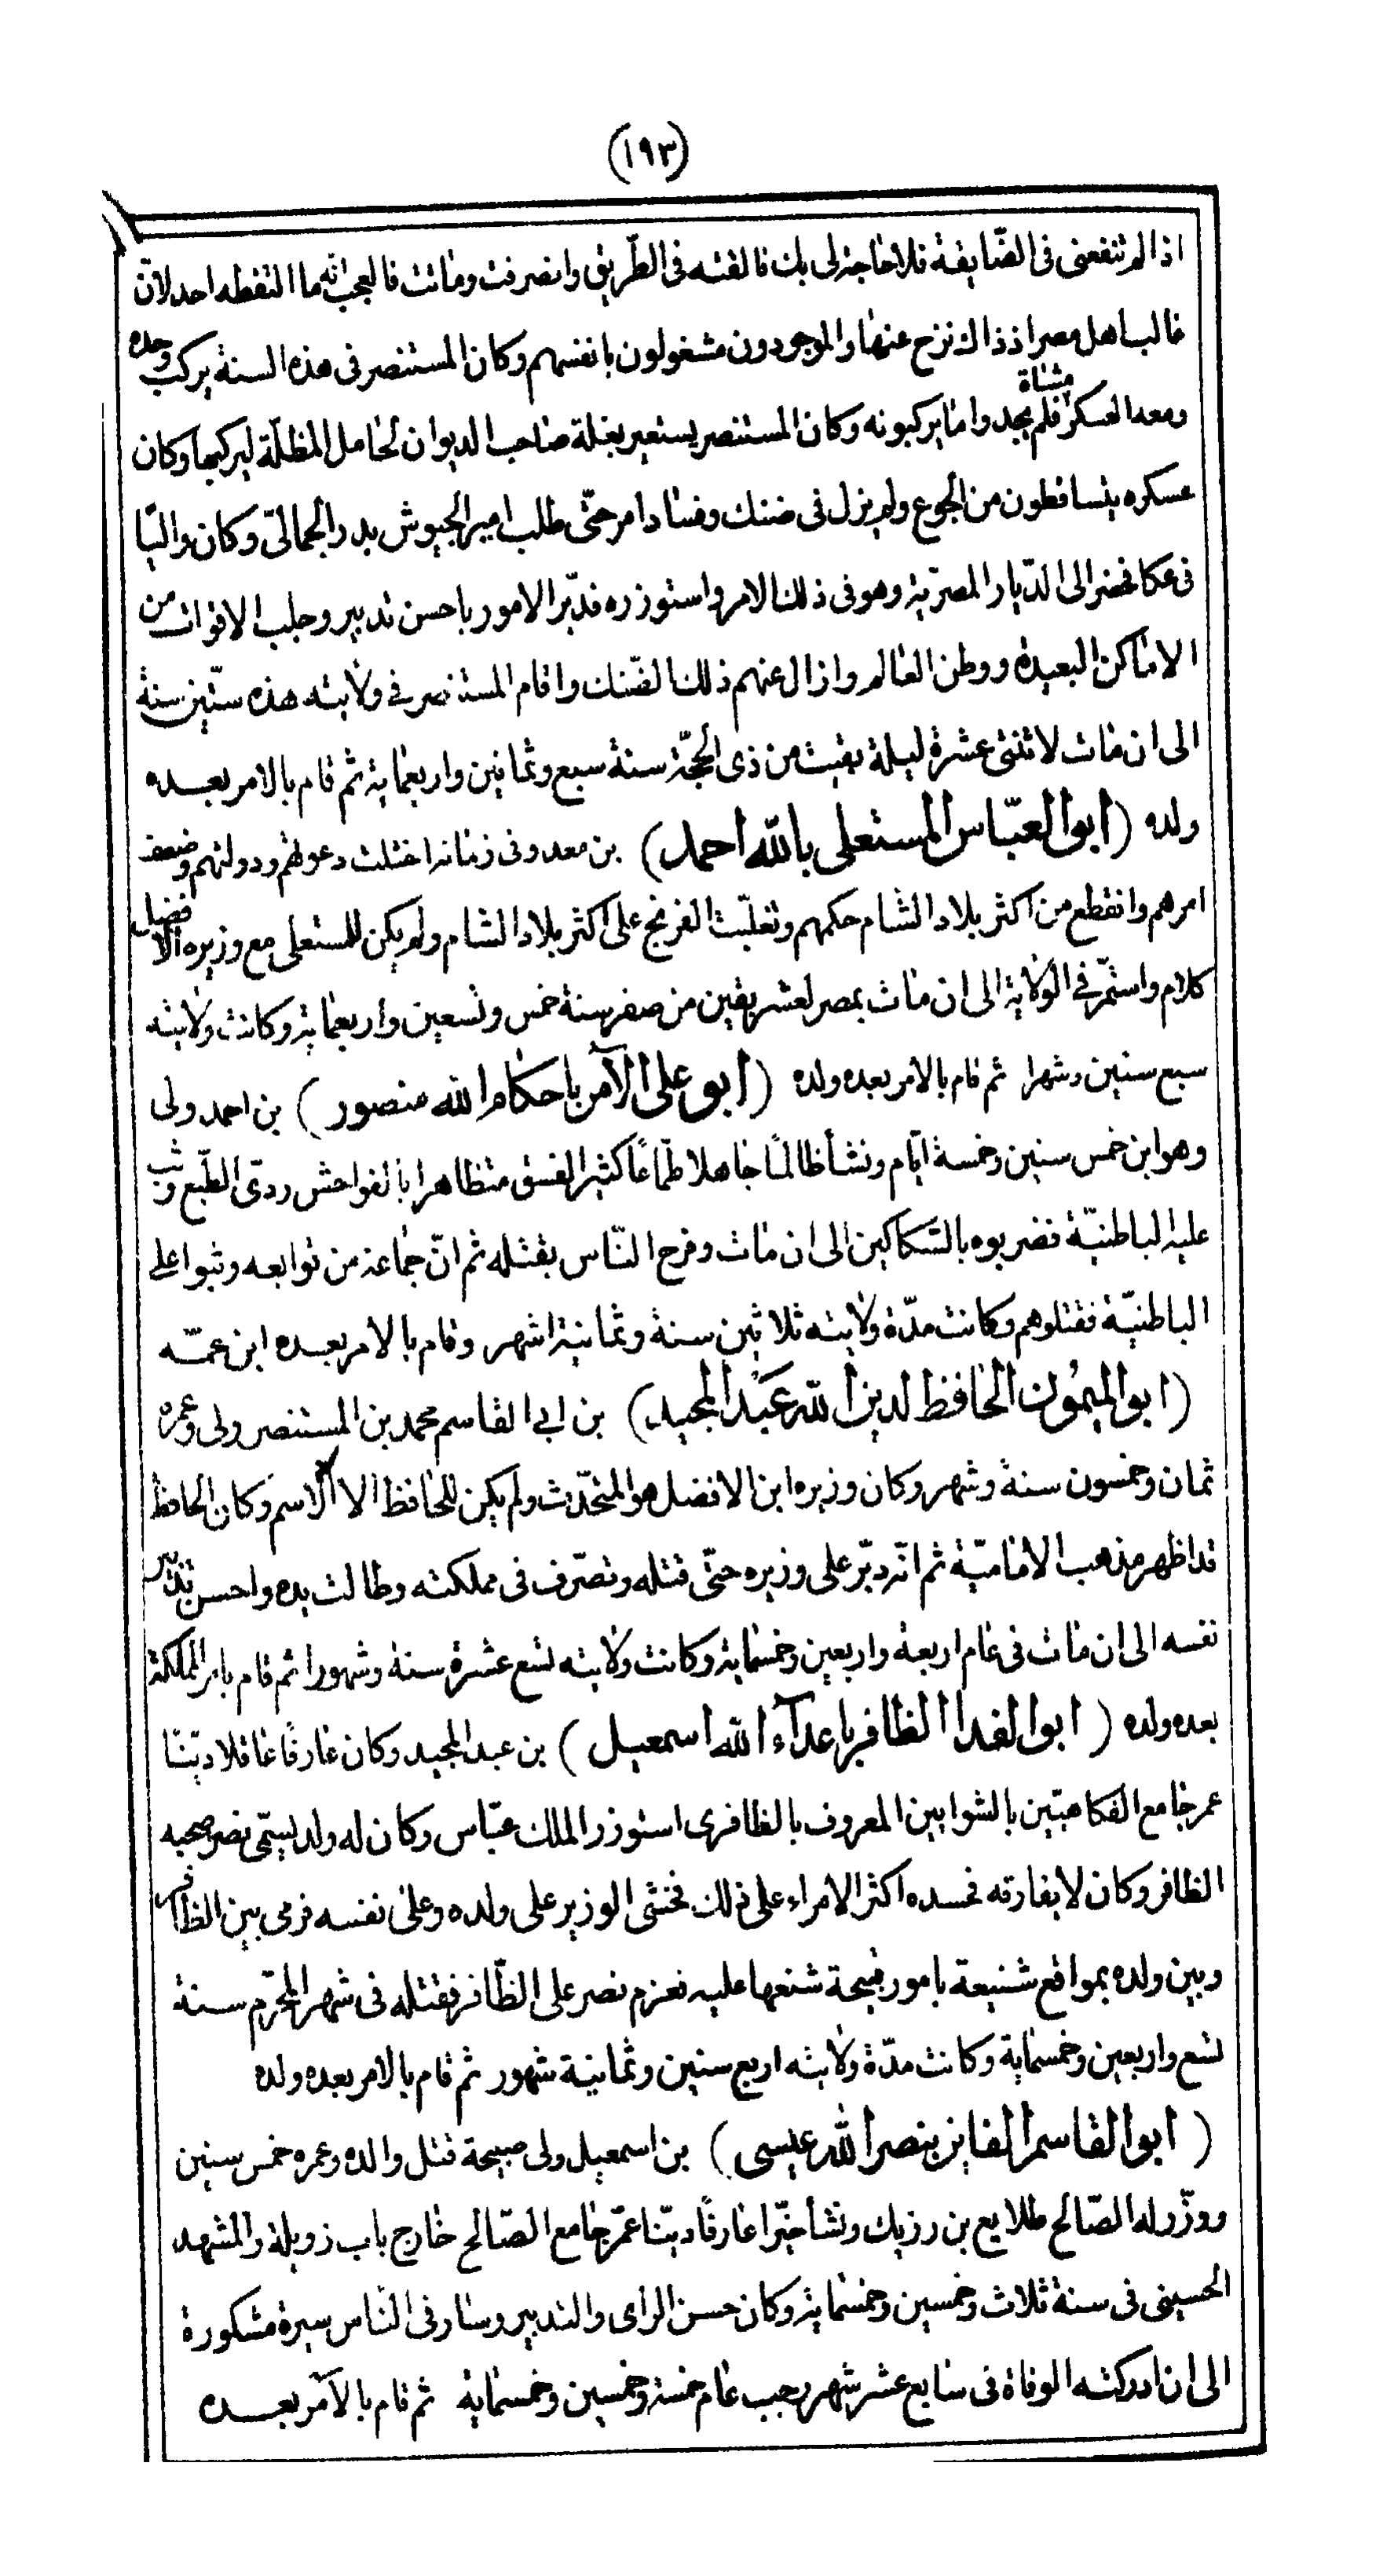 (١٩٣)
اذا لم تنفعنى فى الضّايقة فلا حاجة لى بك فالقته فى الطّريق وانصرفت وماتت فالعجب انّه ما التقطه احد لانّ
غالب اهل مصر اذ ذاك نزح عنها والموجودون مشغولون بانفسهم وكان المستنصر فى هذه السنة يركب وحده
ومعه العسكر مشاة فلم يجدوا ما يركبونه وكان المستنصر يستعير بغلة صاحب الديوان لحامل المظلّة ليركبها وكان
عسكره يتساقطون من الجوع ولم يزل فى ضنك وفساد امر حتّى طلب امير الجيوش بدر الجمالىّ وكان واليًا
فى عكا فحضر الى الدّيار المصريّة وهو فى ذلك الامر واستوزره فدبّر الامور باحسن تدبير وجلب الاقوات من
الاماكن البعيدة ووطن العالم وازال عنهم ذلك الضّنك واقام المستنصر فى ولايته هذه ستّين سنة
الى ان مات لاثنتى عشرة ليلة بقيت من ذى الحجّة سنة سبع وثمانين واربعماية ثم قام بالامر بعده
ولده (ابو العبّاس المستعلى بالله احمد) بن معد وفى زمانه اختلت دعوتهم ودولتهم وضعف
امرهم وانقطع من اكثر بلاد الشام حكمهم وتغلّبت الفرنج على اكثر بلاد الشام ولم يكن للمستعلى مع وزيره الافضل
كلام واستمّر فى الولاية الى ان مات بمصر لعشر بقين من صفر سنة خمس وتسعين واربعماية وكانت ولايته
سبع سنين وشهرا ثم قام بالامر بعده ولده (ابو على الآمر باحكام الله منصور) بن احمد ولى
وهو ابن خمس سنين وخمسة ايّام ونشأ ظالمًا جاهلا طمّاعًا كثير الفسق متظاهرا بالفواحش ردىّ الطّبع وثب
عليه الباطنيّة فضربوه بالسّكاكين الى ان مات وفرح النّاس بقتله ثم انّ جماعة من توابعه وثبوا على
الباطنيّة فقتلوهم وكانت مدّة ولايته ثلاثين سنة وثمانية اشهر وقام بالامر بعده ابن عمّه
(ابو الميمون الحافظ لدين الله عبد المجيد) بن ابى القاسم محمد بن المستنصر ولى وعمره
ثمان وخمسون سنة وشهر وكان وزيره ابن الافضل هو المتحدّث ولم يكن للحافظ الا الاسم وكان الحافظ
قد اظهر مذهب الاماميّة ثم انّه دبّر على وزيره حتّى قتله وتصرّف فى مملكته وطالت يده واحسن تدبير
نفسه الى ان مات فى عام اربعة واربعين وخمسماية وكانت ولايته تسع عشرة سنة وشهورا ثم قام بامر المملكة
بعده ولده (ابو الفدا الظافر باعدآء الله اسمعيل) بن عبد المجيد وكان عارفًا عاقلا ديّنًا
عمر جامع الفكاهيّين بالشوايين المعروف بالظافرى استوزر الملك عبّاس وكان له ولد يسمّى نصر صحبه
الظافر وكان لا يفارقه فحسده اكثر الامراء على ذلك فخشى الوزير على ولده وعلى نفسه فرمى بين الظافر
وبين ولده بمواقع شنيعة بامور قبيحة شنعها عليه فعزم نصر على الظّافر فقتله فى شهر المحرّم سنة
تسع واربعين وخمسماية وكانت مدّة ولايته اربع سنين وثمانية شهور ثم قام بالامر بعده ولده
(ابو القاسم الفايز بنصر الله عيسى) بن اسمعيل ولى صبيحة قتل والده وعمره خمس سنين
ووزّر له الصّالح طلايع بن رزيك ونشأ خيّرا عارفًا ديّنا عمّر جامع الصّالح خارج باب زويلة والمشهد
الحسينى فى سنة ثلاث وخمسين وخمسماية وكان حسن الراى والتدبير وسار فى النّاس سيرة مشكورة
الى ان ادركته الوفاة فى سابع عشر شهر رجب عام خمسة وخمسين وخمسماية ثم قام بالآمر بعده